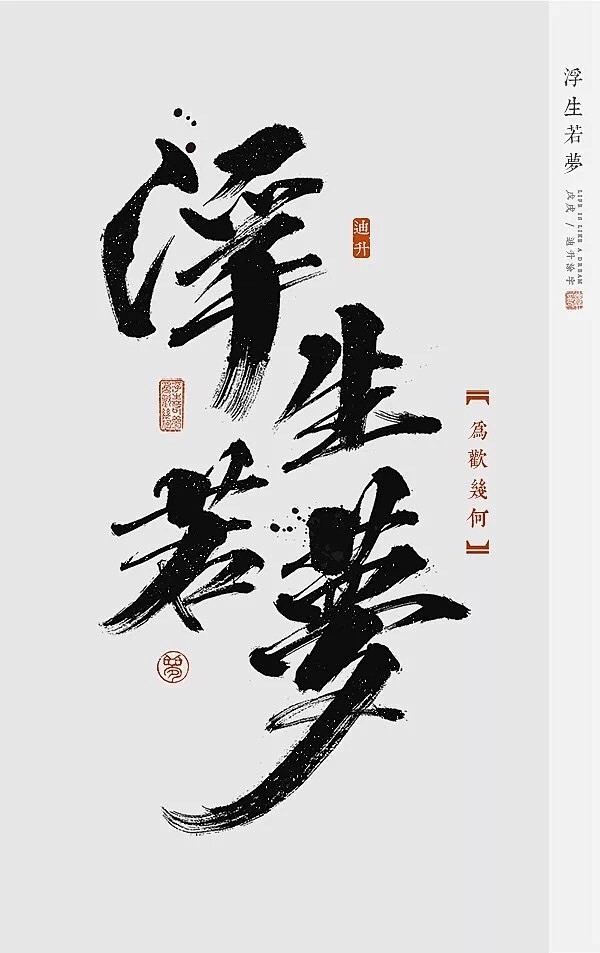 浮生若夢
LIFE IS LIKE A DREAM
戊戌 / 迪升涂字
迪升
浮生若夢
【為歡幾何】